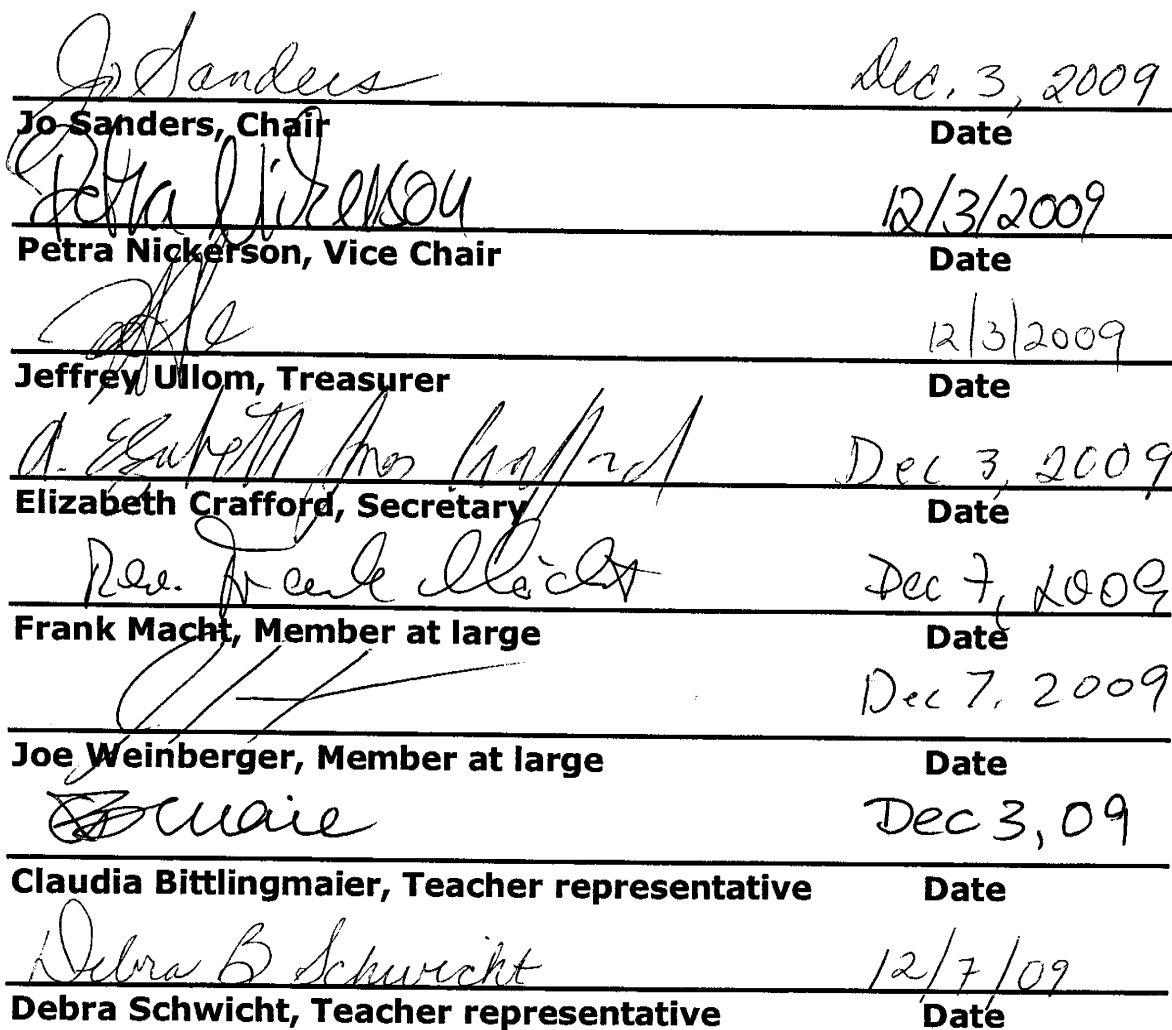 Jo Sanders Dec. 3, 2009
Jo Sanders, Chair Date
Petra Nickerson 12/3/2009
Petra Nickerson, Vice Chair Date
12/3/2009
Jeffrey Ullom, Treasurer Date
A. Elizabeth Crafford Dec 3, 2009
Elizabeth Crafford, Secretary Date
Rev. Frank Macht Dec 7, 2009
Frank Macht, Member at large Date
Dec 7, 2009
Joe Weinberger, Member at large Date
Dec 3, 09
Claudia Bittlingmaier, Teacher representative Date
Debra B Schwicht 12/7/09
Debra Schwicht, Teacher representative Date